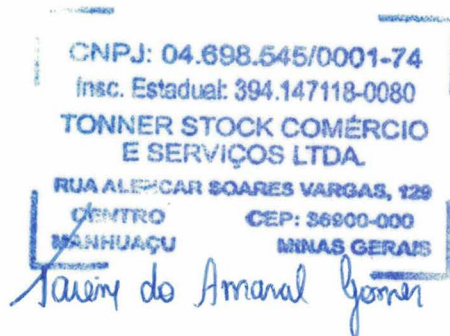 CNPJ: 04.698.545/0001-74
Insc. Estadual: 394.147118-0080
TONNER STOCK COMÉRCIO
E SERVIÇOS LTDA.
RUA ALENCAR SOARES VARGAS, 129
CENTRO CEP: 36900-000
MANHUAÇU MINAS GERAIS
do Amaral